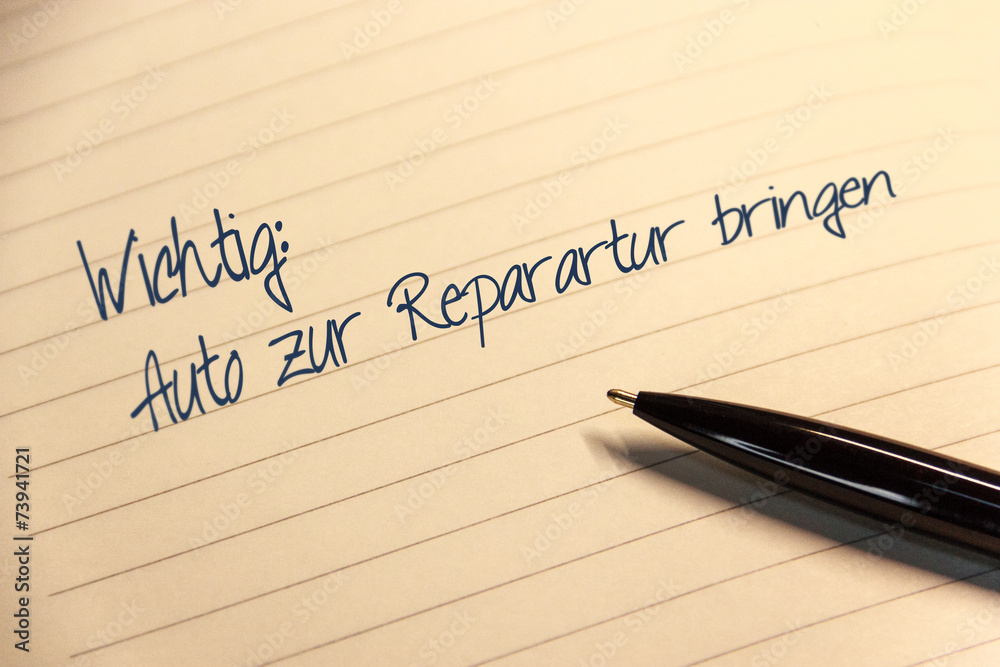 Wichtig:
Auto zur Reparartur bringen
Adobe Stock | #73941721